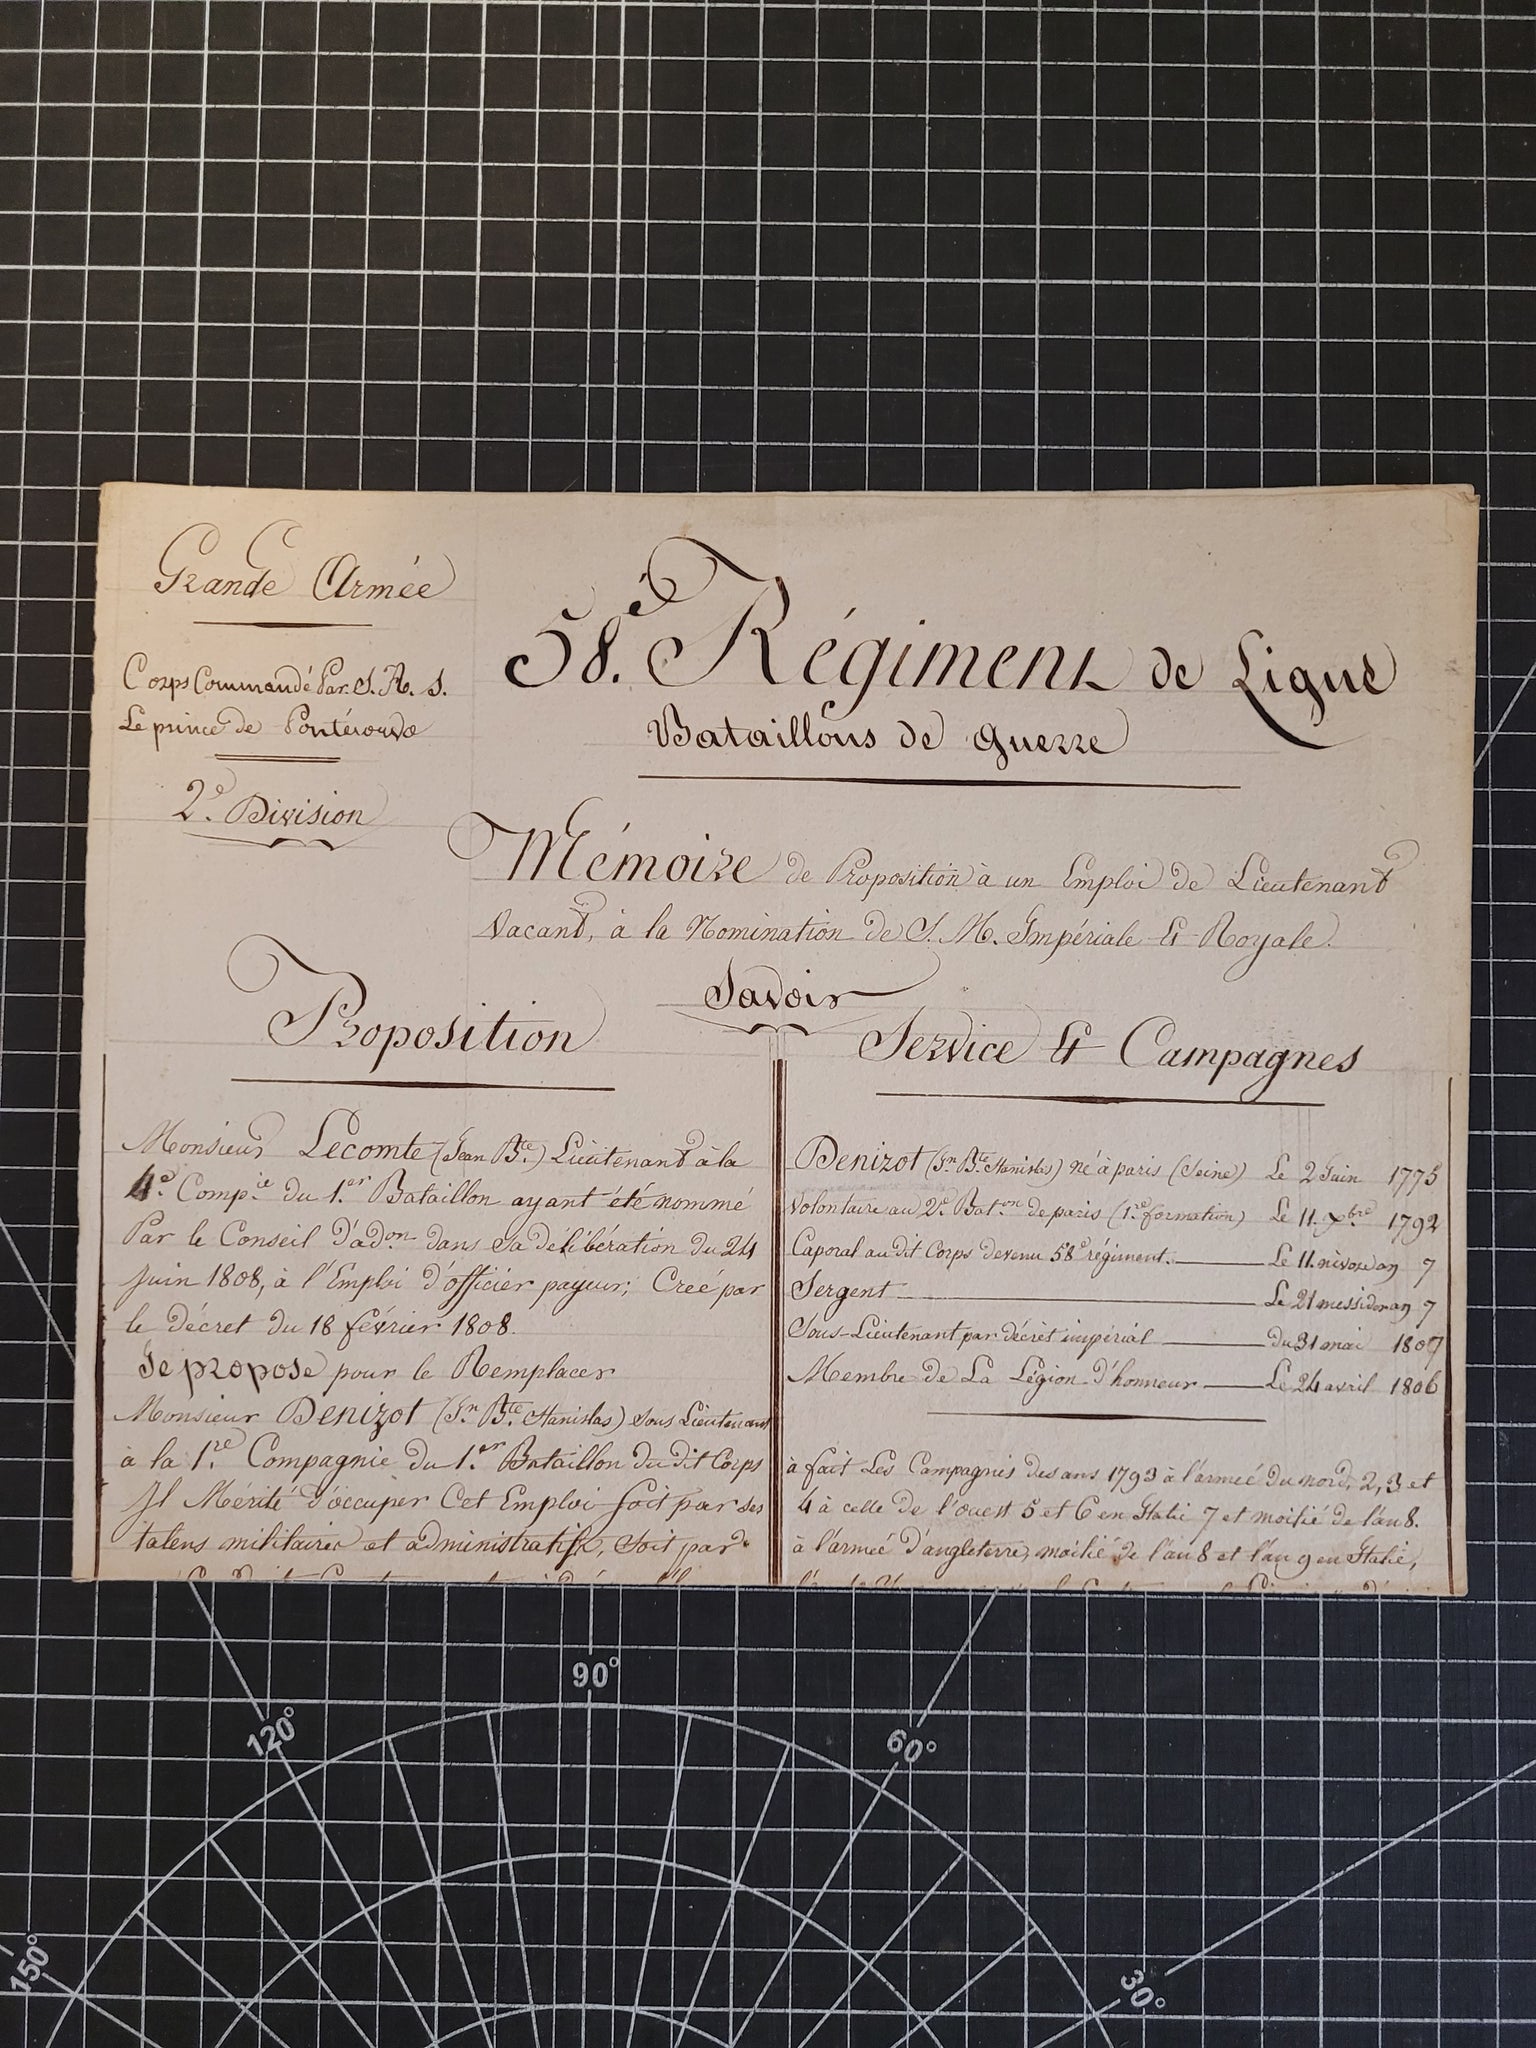 Grande Armée
Corps Commandé Par S. A. S.
Le prince de Pontécorvo
2e. Division
58.e Régiment de Ligne
Bataillons de guerre
Mémoire de Proposition à un Emploi de Lieutenant
Vacant, à la Nomination de S. M. Impériale & Royale.
Savoir
Proposition
Monsieur Lecomte (Jean Bte.) Lieutenant à la
4e. Comp.ie du 1.er Bataillon ayant été nommé
Par le Conseil d'adon. dans sa délibération du 24
juin 1808, à l'Emploi d'officier payeur; Créé par
le décret du 18 février 1808.
Je propose pour le Remplacer
Monsieur Denizot (Jn. Bte. Stanislas) sous Lieutenant
à la 1.re Compagnie du 1.er Bataillon du dit Corps
Il Mérite d'occuper Cet Emploi soit par ses
talens militaires et administratifs, soit par
Service & Campagnes
Denizot (Jn. Bte. Stanislas) né à paris (Seine) Le 2 Juin 1775
Volontaire au 2e. Baton. de paris (1re formation) Le 11. Xbre 1792
Caporal au dit Corps devenu 58e régiment. Le 11. nivose an 7
Sergent Le 21 messidor an 7
Sous-Lieutenant par décret impérial du 31 mai 1807
Membre de La Légion d'honneur Le 24 avril 1806
à fait Les Campagnes des ans 1793 à l'armée du nord, 2, 3 et
4 à celle de l'ouest 5 et 6 en Italie 7 et moitié de l'an 8.
à l'armée d'angleterre, moitié de l'an 8 et l'an 9 en Italie,
90°
120°
60°
150°
30°